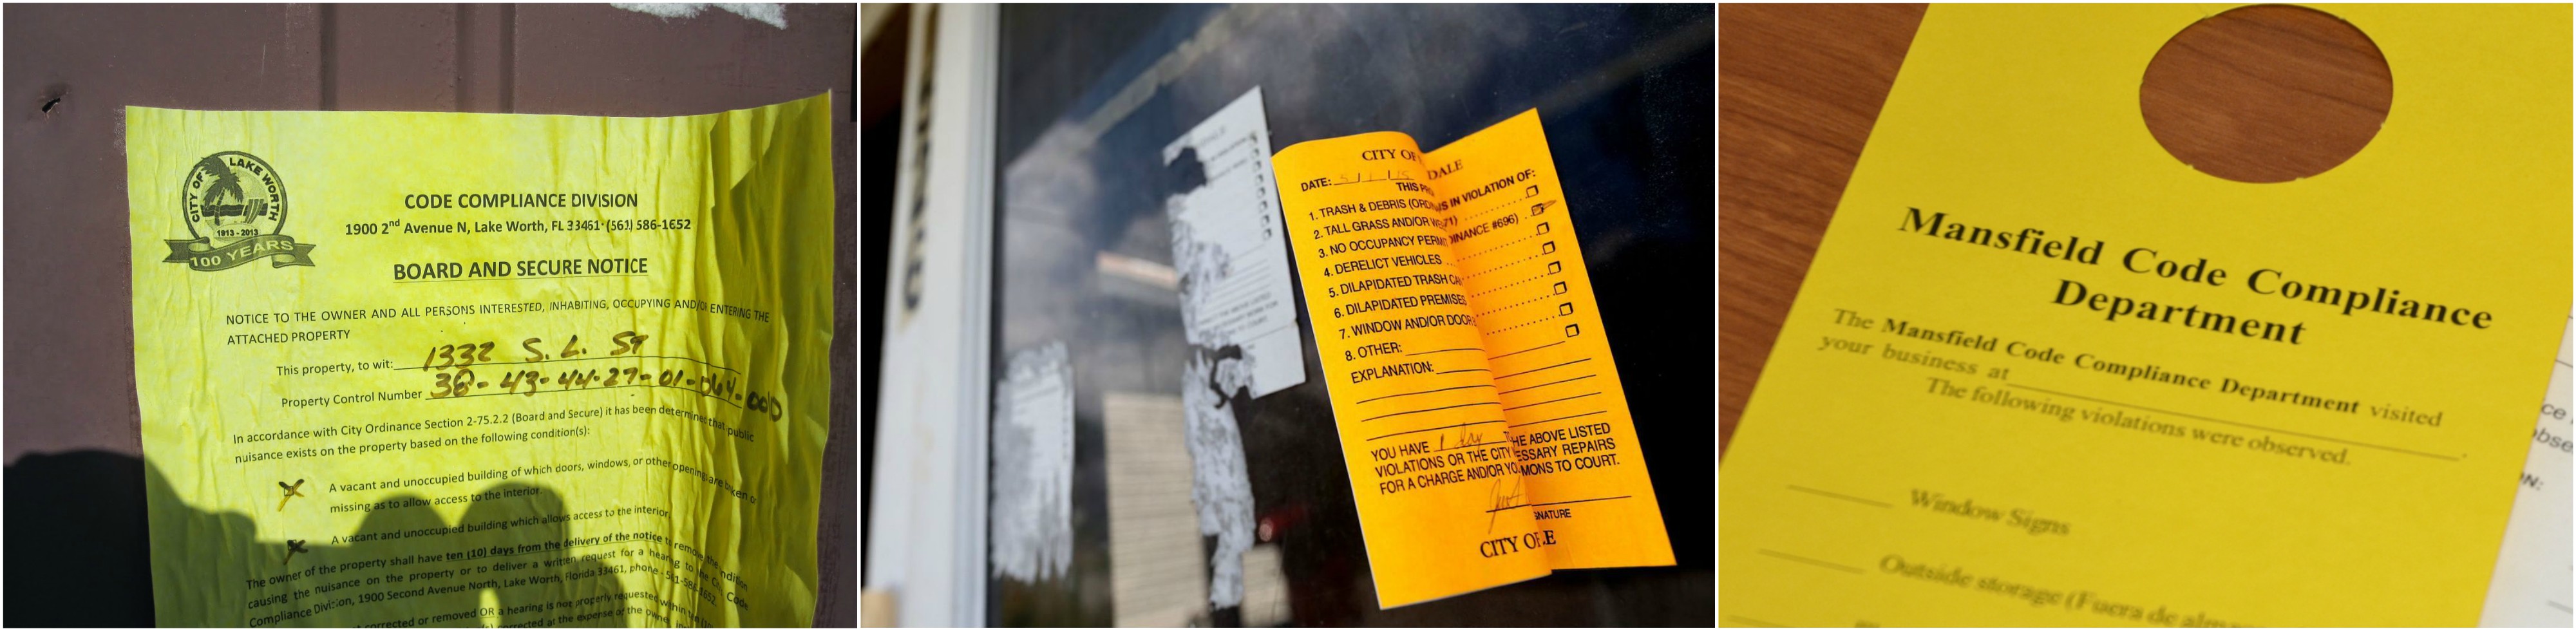 CITY OF LAKE WORTH
1913 - 2013
100 YEARS
CODE COMPLIANCE DIVISION
1900 2nd Avenue N, Lake Worth, FL 33461· (561) 586-1652
BOARD AND SECURE NOTICE
NOTICE TO THE OWNER AND ALL PERSONS INTERESTED, INHABITING, OCCUPYING AND/OR ENTERING THE
ATTACHED PROPERTY
This property, to wit: 1332 S. L. ST
Property Control Number 38-43-44-27-01-064-0010
In accordance with City Ordinance Section 2-75.2.2 (Board and Secure) it has been determined that public
nuisance exists on the property based on the following condition(s):
A vacant and unoccupied building of which doors, windows, or other openings are broken or
missing as to allow access to the interior.
A vacant and unoccupied building which allows access to the interior.
The owner of the property shall have ten (10) days from the delivery of the notice to remove the condition
causing the nuisance on the property or to deliver a written request for a hearing to the City, Code
Compliance Division, 1900 Second Avenue North, Lake Worth, Florida 33461, phone - 561-586-1652.
corrected or removed OR a hearing is not properly requested within
corrected at the expense of the owner
CITY OF DALE
DATE: 5/1/15
THIS IN VIOLATION OF:
1. TRASH & DEBRIS
2. TALL GRASS AND/OR
3. NO OCCUPANCY PERM #696)
4. DERELICT VEHICLES
5. DILAPIDATED TRASH CA
6. DILAPIDATED PREMISES
7. WINDOW AND/OR DOOR
8. OTHER:
EXPLANATION:
YOU HAVE 1 day THE ABOVE LISTED
VIOLATIONS OR THE CITY ESSARY REPAIRS
FOR A CHARGE AND/OR YO MONS TO COURT.
GNATURE
CITY OF LE
Mansfield Code Compliance
Department
The Mansfield Code Compliance Department visited
your business at
The following violations were observed.
Window Signs
Outside storage (Fuera de